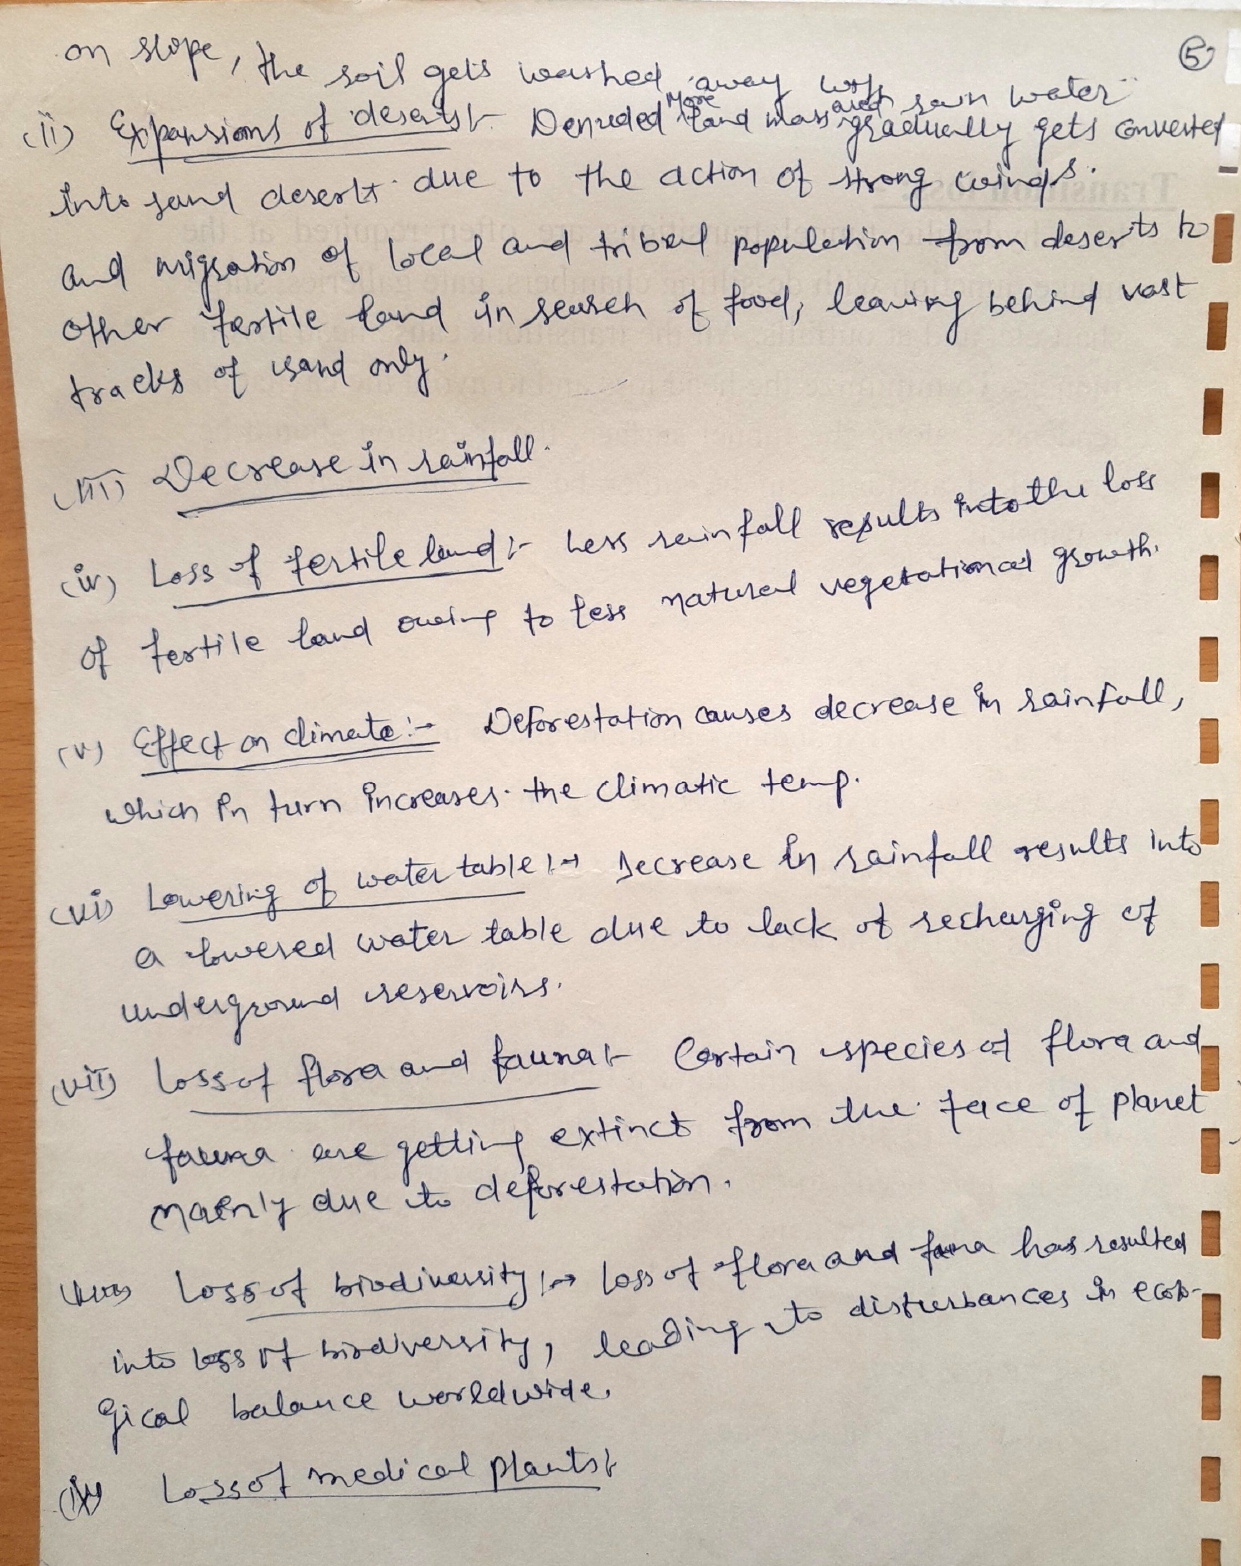 5
on slope, the soil gets washed away with rain water
(ii) Expansions of deserts:- Denuded More land mass area gradually gets converted
into sand desert due to the action of strong winds.
and migration of local and tribal population from deserts to
other fertile land in search of food, leaving behind vast
tracks of sand only.
(iii) Decrease in rainfall.
(iv) Loss of fertile land:- Less rainfall results into the loss
of fertile land owing to less natural vegetational growth.
(v) Effect on climate:- Deforestation causes decrease in rainfall,
which in turn increases the climatic temp.
(vi) Lowering of water table:- Decrease in rainfall results into
a lowered water table due to lack of recharging of
underground reservoirs.
(vii) Loss of flora and fauna:- Certain species of flora and
fauna are getting extinct from the face of planet
mainly due to deforestation.
(viii) Loss of biodiversity:- Loss of flora and fauna has resulted
into loss of biodiversity, leading to disturbances in ecolo-
gical balance worldwide.
(ix) Loss of medical plants:-